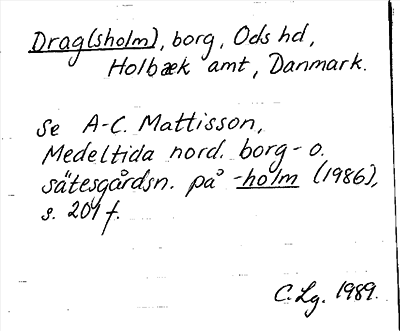 Drag(sholm), borg, Ods hd,
Holbæk amt, Danmark.
Se A-C. Mattisson,
Medeltida nord. borg- o.
sätesgårdsn. på -holm (1986),
s. 201 f.
C. Lg. 1989.